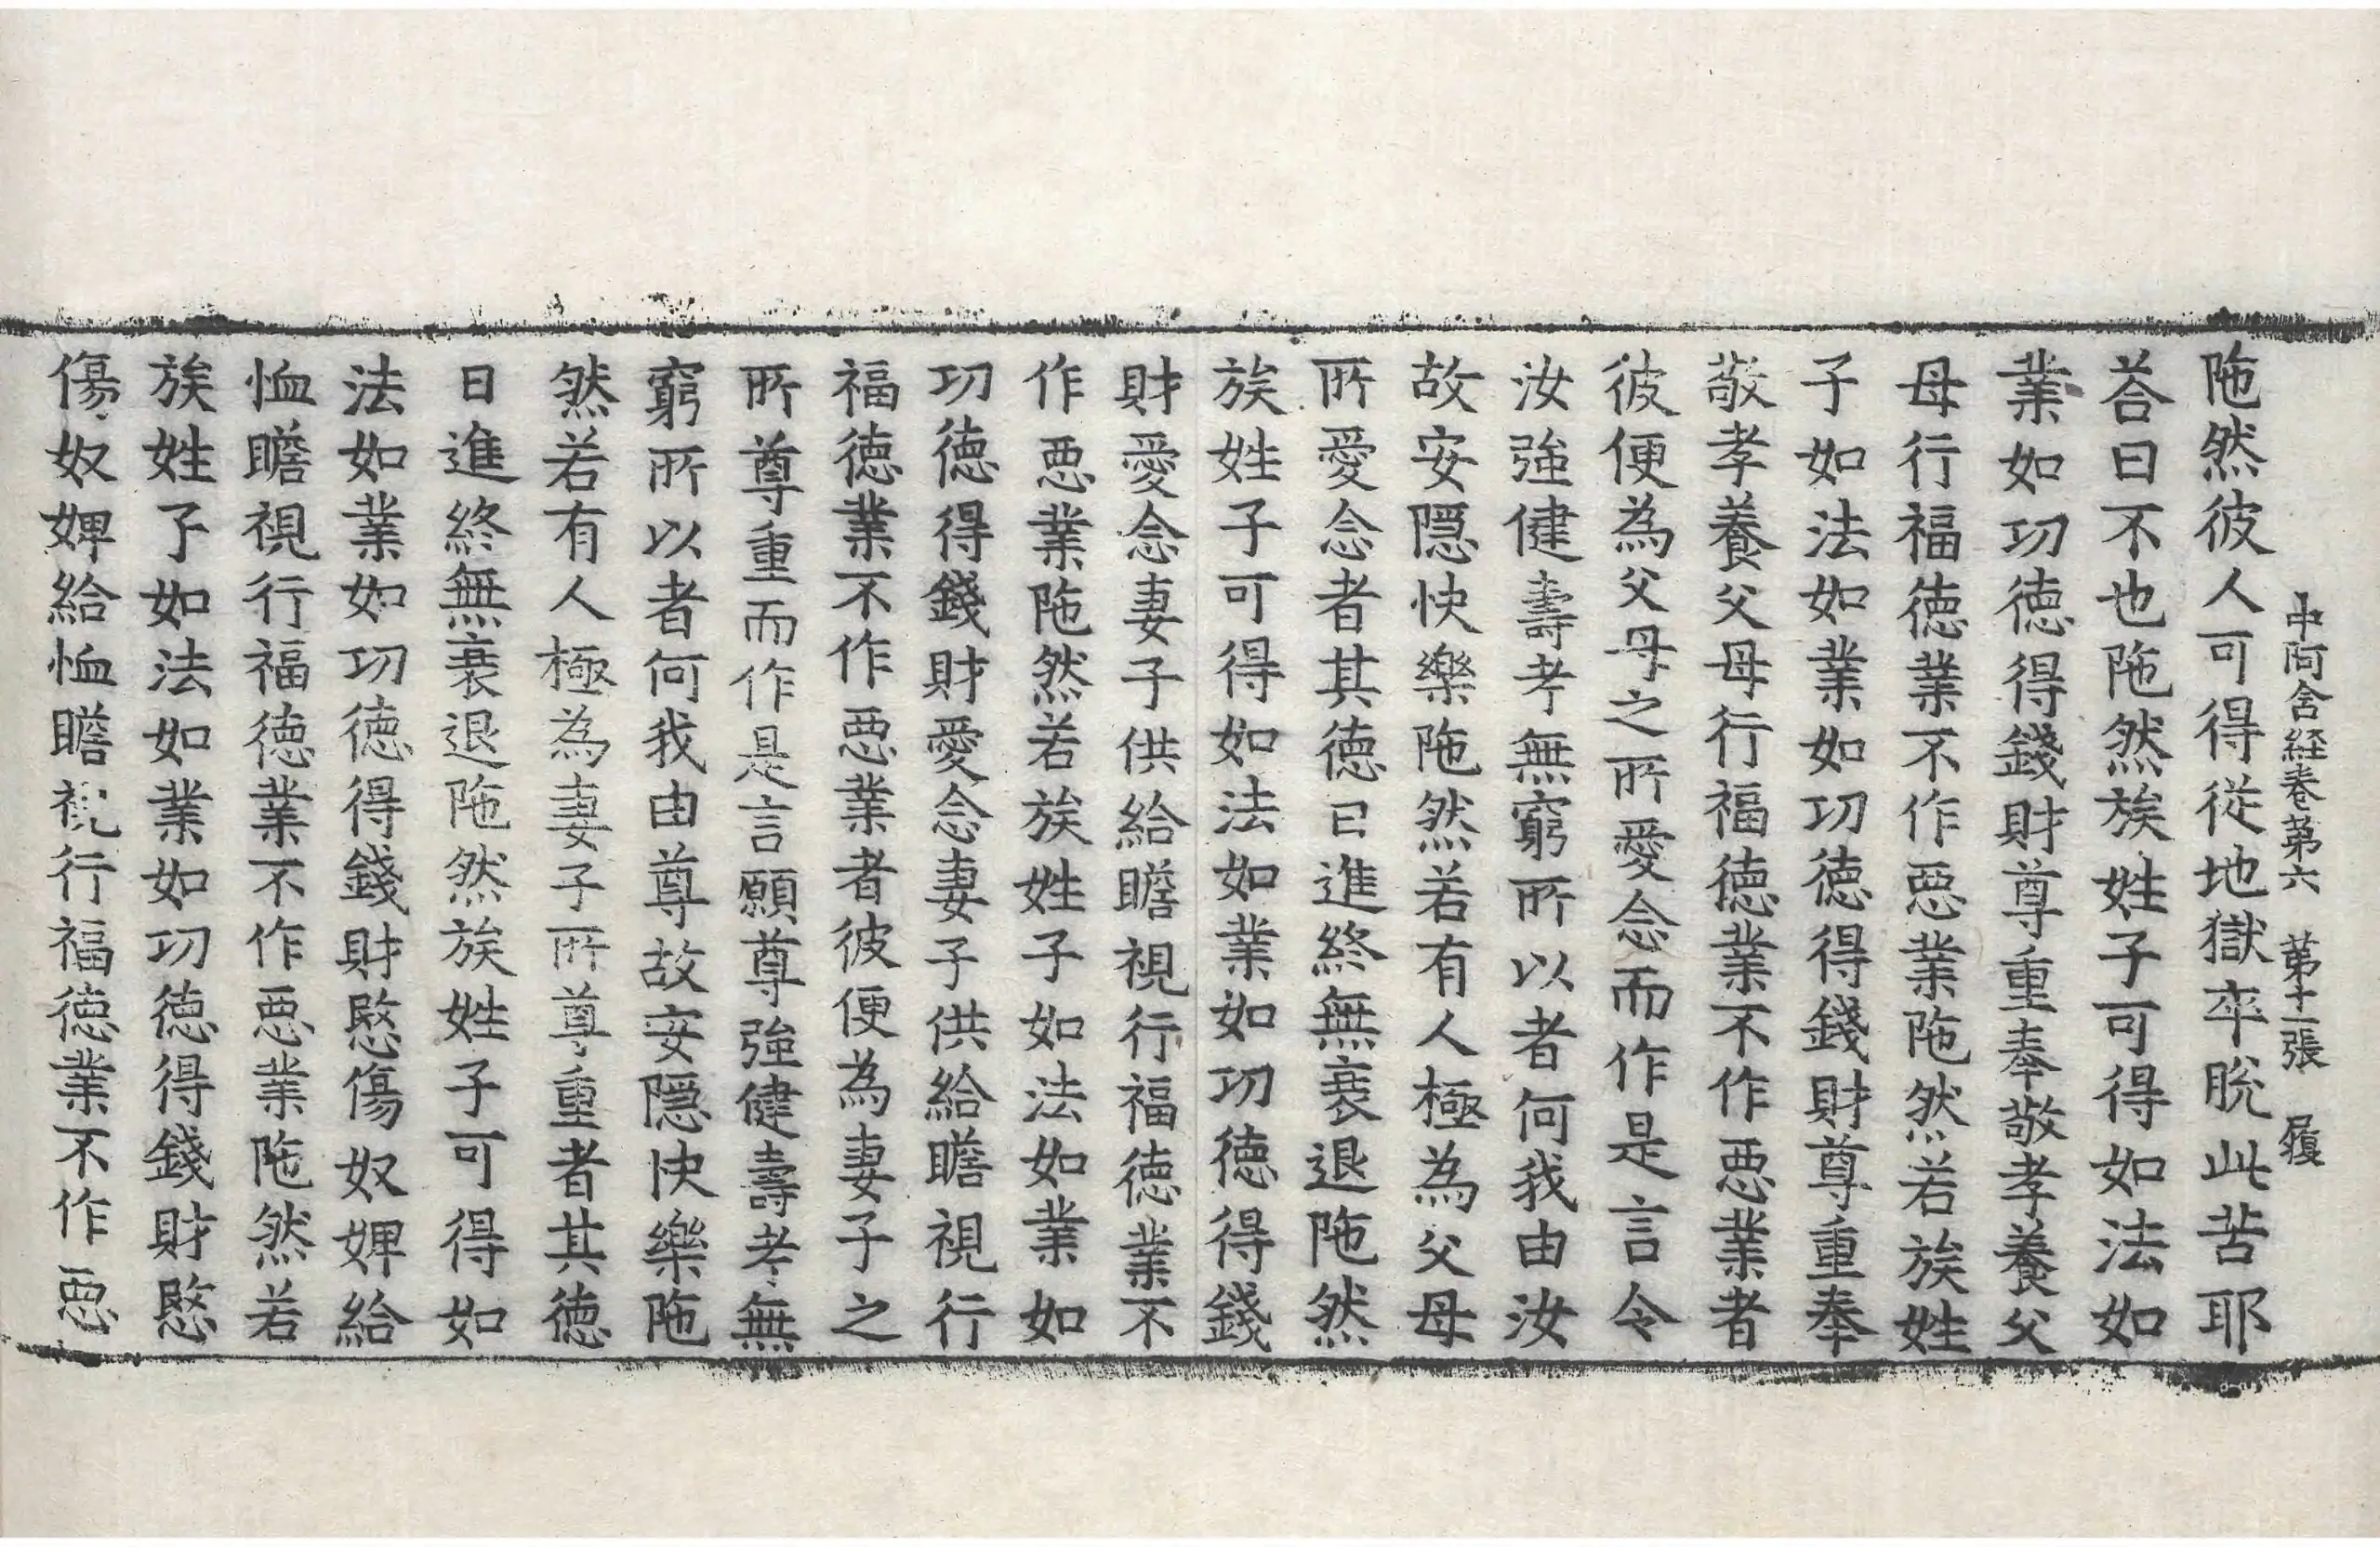 中阿含経巻第六　第十一張　履
陁然彼人可得從地獄卒脫此苦耶
荅曰不也陁然族姓子可得如法如
業如功徳得錢財尊重奉敬孝養父
母行福徳業不作惡業陁然若族姓
子如法如業如功徳得錢財尊重奉
敬孝養父母行福徳業不作惡業者
彼便為父母之所愛念而作是言令
汝強健壽考無窮所以者何我由汝
故安隱快樂陁然若有人極為父母
所愛念者其徳日進終無衰退陁然
族姓子可得如法如業如功徳得錢
財愛念妻子供給瞻視行福徳業不
作惡業陁然若族姓子如法如業如
功徳得錢財愛念妻子供給瞻視行
福徳業不作惡業者彼便為妻子之
所尊重而作是言願尊強健壽考無
窮所以者何我由尊故安隱快樂陁
然若有人極為妻子所尊重者其徳
日進終無衰退陁然族姓子可得如
法如業如功徳得錢財愍傷奴婢給
恤瞻視行福徳業不作惡業陁然若
族姓子如法如業如功徳得錢財愍
傷奴婢給恤瞻視行福徳業不作惡